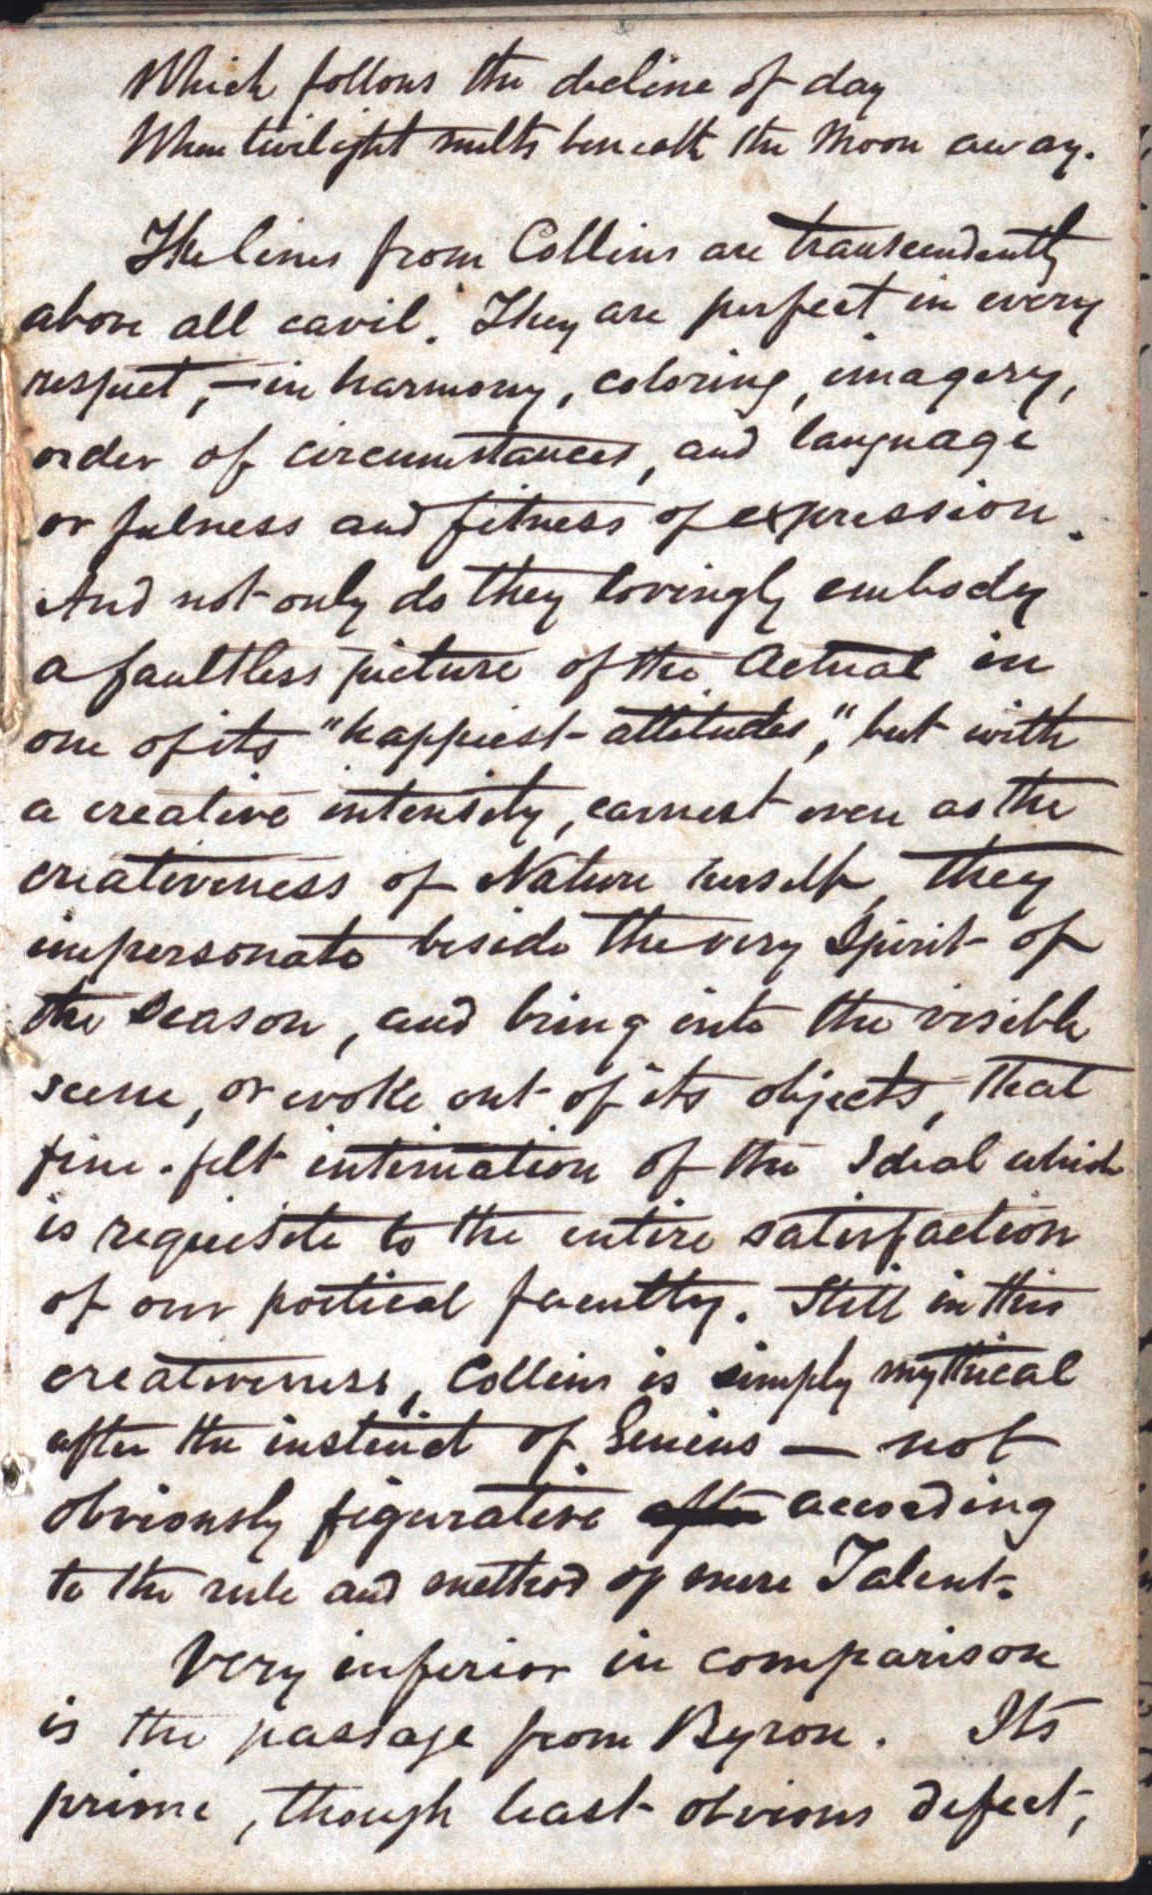 Which follows the decline of day
When twilight melts beneath the Moon away.
The lines from Collins are transcendently
above all cavil. They are perfect in every
respect, – in harmony, coloring, imagery,
order of circumstances, and language
or fulness and fitness of expression.
And not only do they lovingly embody
a faultless picture of the Actual in
one of its "happiest attitudes," but with
a creative intensity, earnest even as the
creativeness of Nature herself, they
impersonate beside the very Spirit of
the Season, and bring into the visible
scene, or evoke out of its objects, that
fine-felt intimation of the Ideal which
is requisite to the entire satisfaction
of our poetical faculty. Still in this
creativeness, Collins is simply mythical
after the instinct of Genius — not
obviously figurative after according
to the rule and method of mere Talent.
Very inferior in comparison
is the passage from Byron. Its
prime, though least obvious defect,